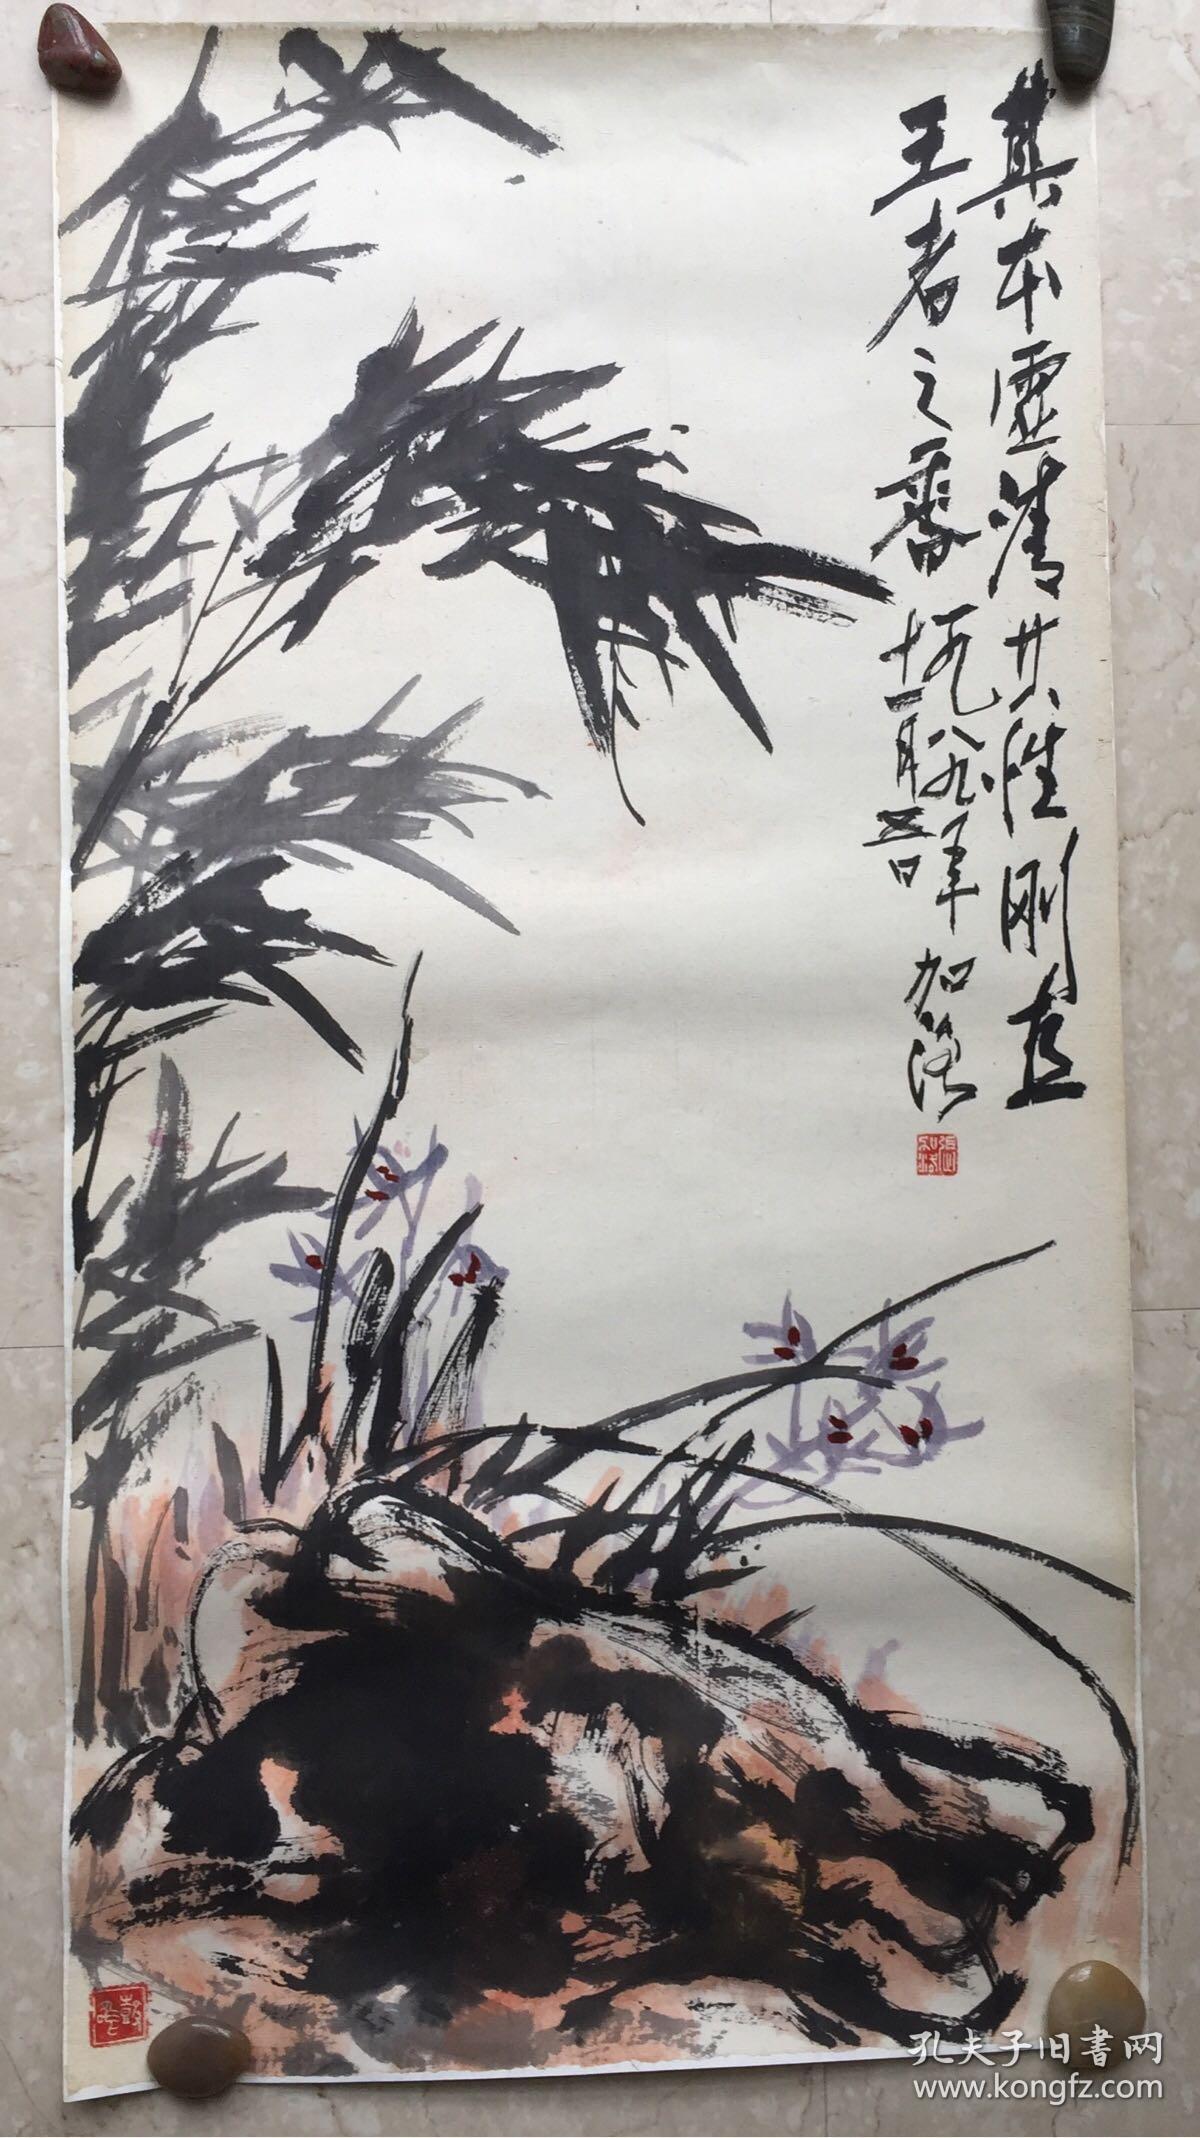 其本虚清其性刚直
王者之香
一九八九年
十一月五日
加洛
孔夫子旧书网
www.kongfz.com